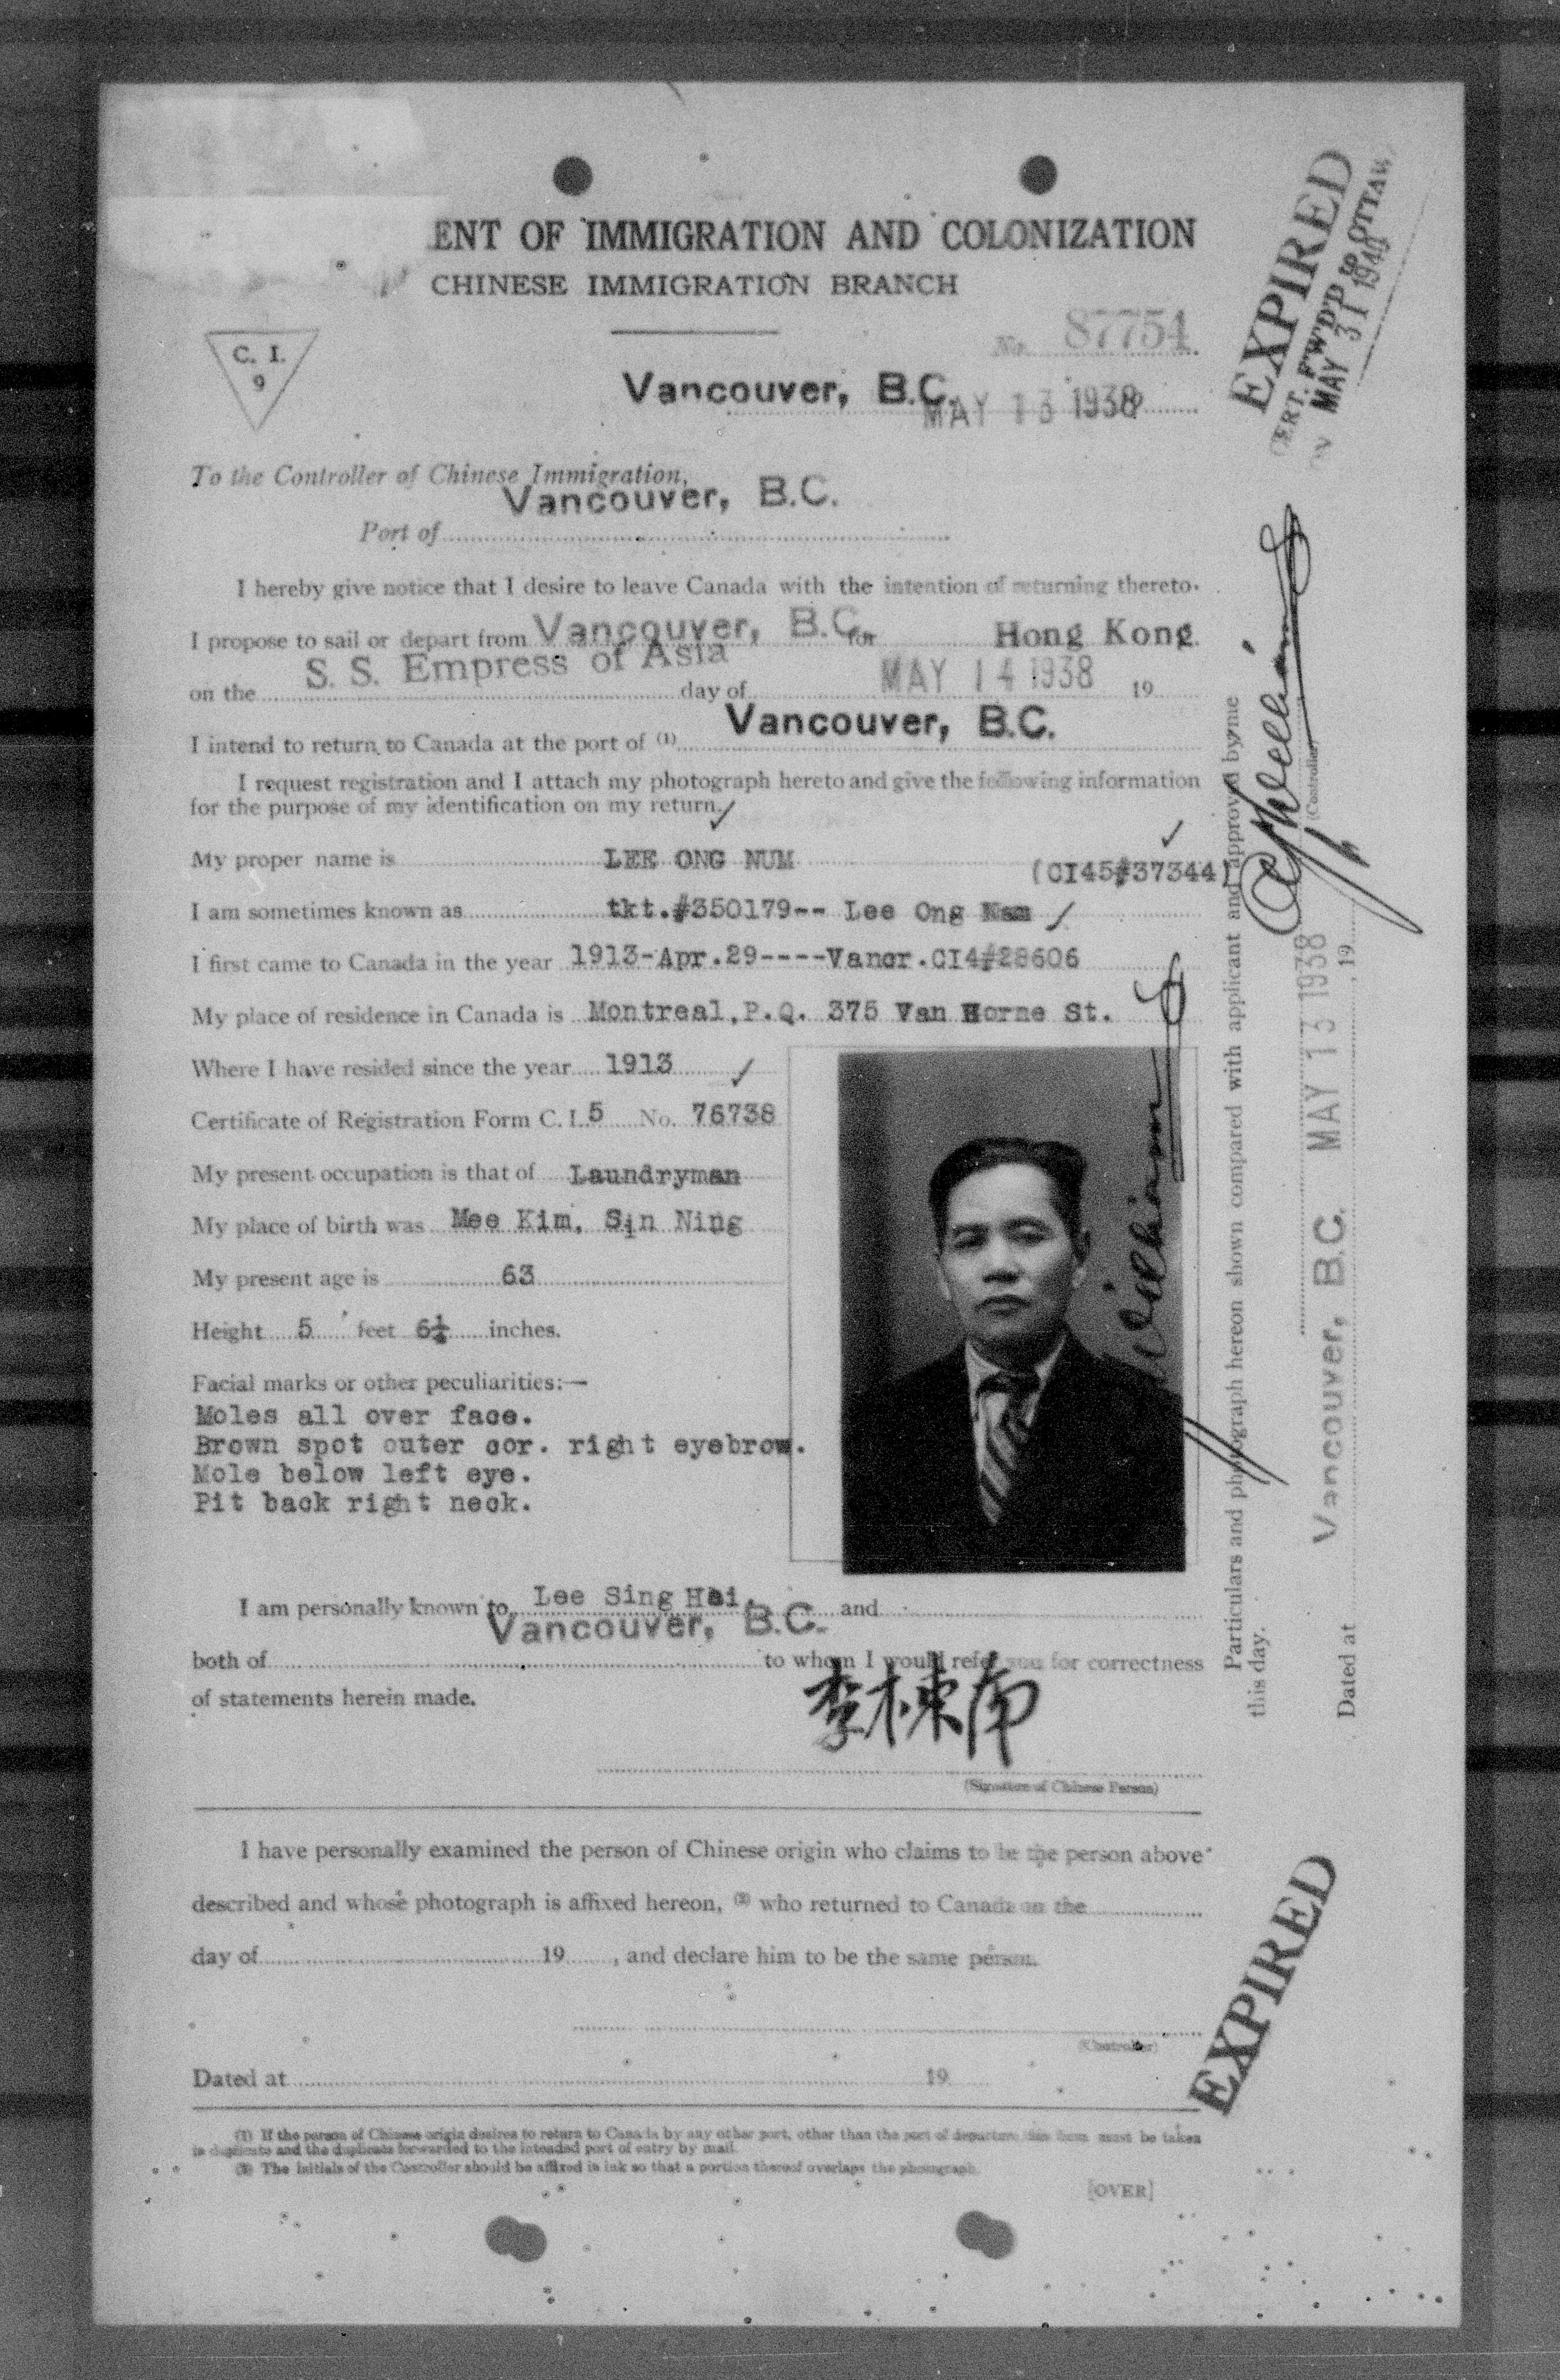 ENT OF IMMIGRATION AND COLONIZATION
CHINESE IMMIGRATION BRANCH
C. I.
9
No. 87754
Vancouver, B.C. MAY 13 1938
To the Controller of Chinese Immigration,
Vancouver, B.C.
Port of
I hereby give notice that I desire to leave Canada with the intention of returning thereto.
I propose to sail or depart from Vancouver, B.C. for Hong Kong
on the S. S. Empress of Asia day of MAY 14 1938 19
I intend to return to Canada at the port of (1) Vancouver, B.C.
I request registration and I attach my photograph hereto and give the following information
for the purpose of my identification on my return.
My proper name is LEE ONG NUM (CI45#37344)
I am sometimes known as tkt.#350179-- Lee Ong Nam
I first came to Canada in the year 1913-Apr.29----Vancr.CI4#28606
My place of residence in Canada is Montreal,P.Q. 375 Van Horne St.
Where I have resided since the year 1913
Certificate of Registration Form C. I. 5 No. 76738
My present occupation is that of Laundryman
My place of birth was Mee Kim, Sin Ning
My present age is 63
Height 5 feet 6¼ inches.
Facial marks or other peculiarities:—
Moles all over face.
Brown spot outer cor. right eyebrow.
Mole below left eye.
Pit back right neck.
I am personally known to Lee Sing Hai, and
Vancouver, B.C.
both of to whom I would refer you for correctness
of statements herein made.
李棟南
(Signature of Chinese Person)
I have personally examined the person of Chinese origin who claims to be the person above
described and whose photograph is affixed hereon, (2) who returned to Canada on the
day of 19 , and declare him to be the same person.
(Controller)
Dated at 19
(1) If the person of Chinese origin desires to return to Canada by any other port, other than the port of departure, this form must be taken
in duplicate and the duplicate forwarded to the intended port of entry by mail.
(2) The initials of the Controller should be affixed in ink so that a portion thereof overlaps the photograph.
[OVER]
EXPIRED
CERT. FW'D'D to OTTAWA
ON MAY 31 1940
Particulars and photograph hereon shown compared with applicant and approved by me
this day.
(Controller)
Dated at Vancouver, B.C. MAY 13 1938 19
EXPIRED